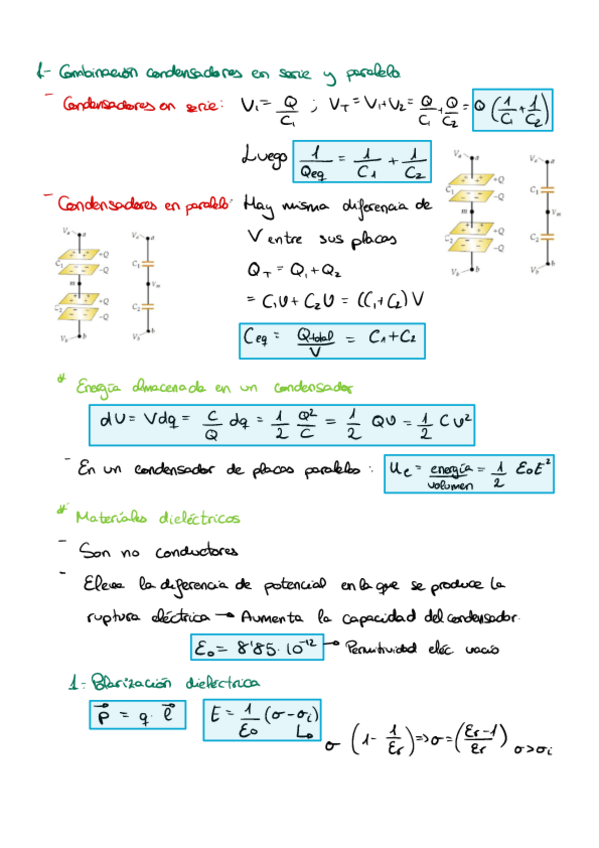 1- Combinación condensadores en serie y paralelo
- Condensadores en serie: V₁ = Q/C₁ ; V_T = V₁+V₂ = Q/C₁ + Q/C₂ = Q (1/C₁ + 1/C₂)
Luego 1/Qeq = 1/C₁ + 1/C₂
Va a
C₁ +Q -Q
m
C₂ +Q -Q
Vb b
Va a
C₁
Vm
C₂
Vb b
- Condensadores en paralelo: Hay misma diferencia de
V entre sus placas
Q_T = Q₁ + Q₂
= C₁V + C₂V = (C₁+C₂) V
Ceq = Qtotal/V = C₁+C₂
Va a
C₁ +Q -Q
m
C₂ +Q -Q
Vb b
Va a
C₁
Vm
C₂
Vb b
* Energía almacenada en un condensador
dU = Vdq = C/Q dq = 1/2 Q²/C = 1/2 QV = 1/2 CV²
- En un condensador de placas paralelas: Uc = energía/volumen = 1/2 ε₀E²
* Materiales dieléctricos
- Son no conductores
- Eleva la diferencia de potencial en la que se produce la
ruptura eléctrica → Aumenta la capacidad del condensador.
ε₀ = 8'85·10⁻¹² → Permitividad eléc vacío
1- Polarización dieléctrica
p⃗ = q · l⃗
E = 1/ε₀ (σ-σi)
σ (1 - 1/εr) => σ = (εr-1/εr) σ>σi